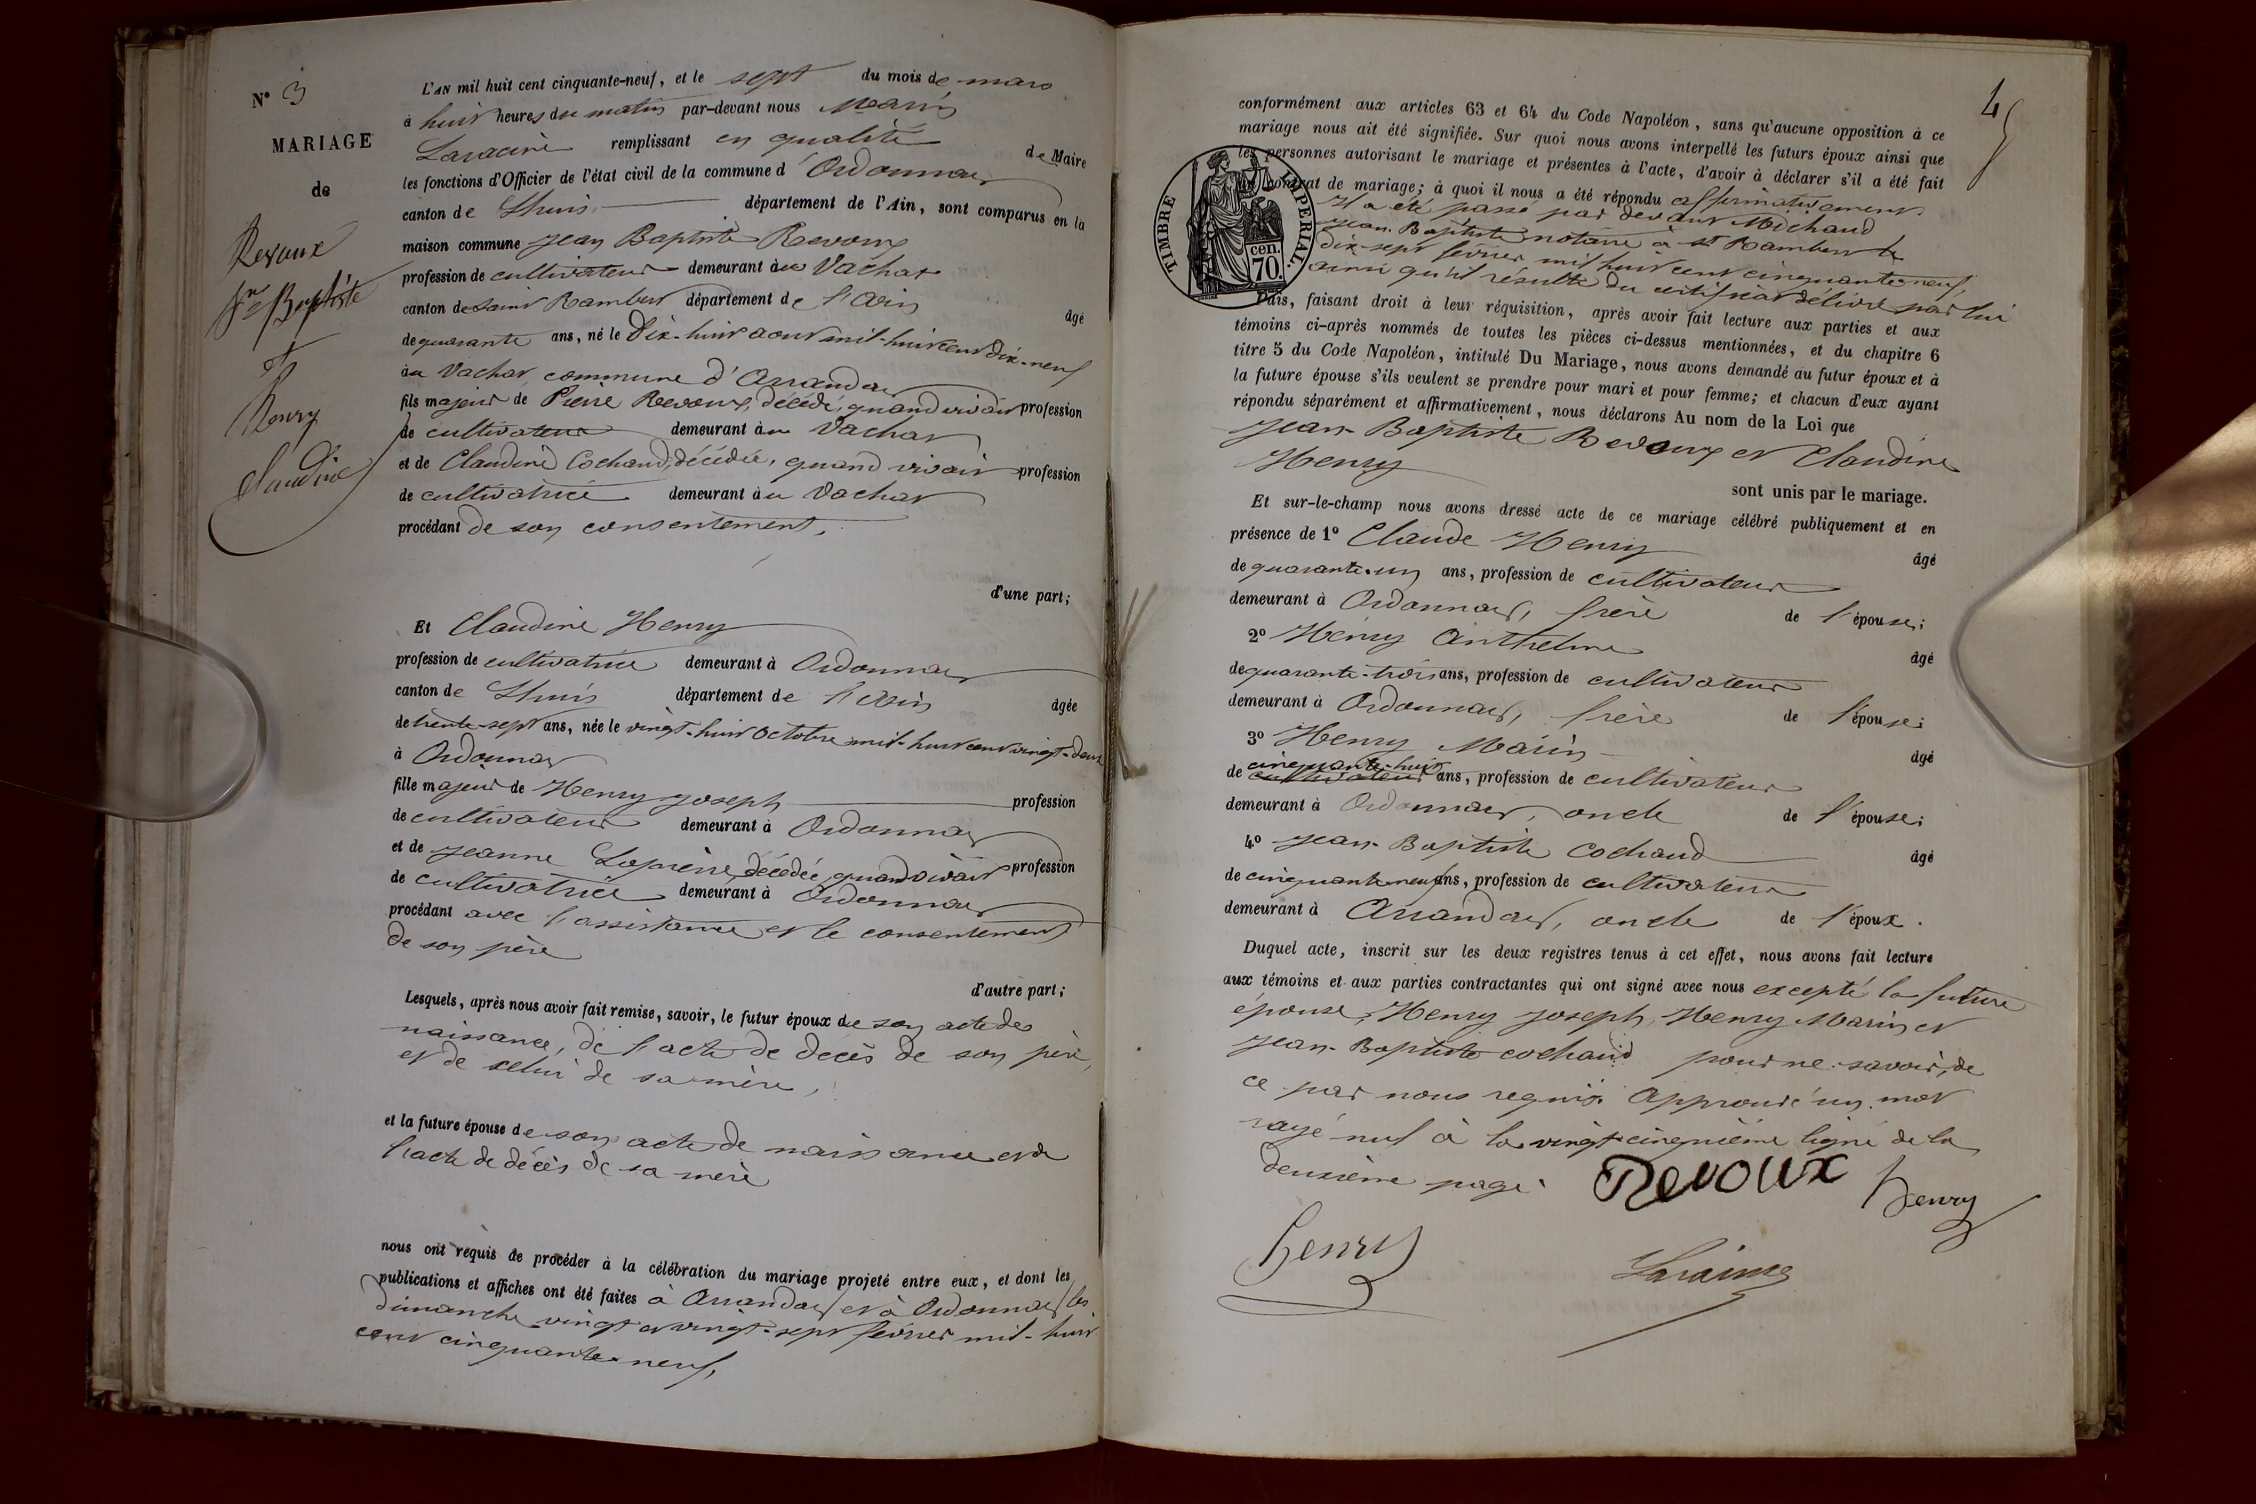 N° 3
MARIAGE
de
Revoux
Jn Baptiste
et
Henry
Claudine
L'AN mil huit cent cinquante-neuf, et le sept du mois de mars
à huit heures du matin par-devant nous Marin
Laracine remplissant en qualité de Maire
les fonctions d'Officier de l'état civil de la commune d'Ordonnas
canton de Lhuis département de l'Ain, sont comparus en la
maison commune Jean Baptiste Revoux
profession de cultivateur demeurant au Vachat
canton de Saint Rambert département de l'Ain âgé
de quarante ans, né le Dix-huit aout mil-huit cent dix-neuf
au Vachat commune d'Arandas
fils majeur de Pierre Revoux, décédé, quand vivait profession
de cultivateur demeurant au Vachat
et de Claudine Cochaud, décédée, quand vivait profession
de cultivatrice demeurant au Vachat
procédant de son consentement,
d'une part;
Et Claudine Henry
profession de cultivatrice demeurant à Ordonnas
canton de Lhuis département de l'Ain âgée
de trente-sept ans, née le vingt-huit octobre mil-huit cent vingt-deux
à Ordonnas
fille majeur de Henry Joseph profession
de cultivateur demeurant à Ordonnas
et de Jeanne Lapierre, décédée, quand vivait profession
de cultivatrice demeurant à Ordonnas
procédant avec l'assistance et le consentement
de son père
d'autre part;
Lesquels, après nous avoir fait remise, savoir, le futur époux de son acte de
naissance, de l'acte de décès de son père,
et de celui de sa mère,
et la future épouse de son acte de naissance et de
l'acte de décès de sa mère
nous ont requis de procéder à la célébration du mariage projeté entre eux, et dont les
publications et affiches ont été faites à Arandas et à Ordonnas les
dimanche vingt et vingt-sept février mil-huit
cent cinquante-neuf,
4
conformément aux articles 63 et 64 du Code Napoléon, sans qu'aucune opposition à ce
mariage nous ait été signifiée. Sur quoi nous avons interpellé les futurs époux ainsi que
les personnes autorisant le mariage et présentes à l'acte, d'avoir à déclarer s'il a été fait
un contrat de mariage; à quoi il nous a été répondu affirmativement.
Il a été passé par devant Michaud
Jean Baptiste notaire à St Rambert le
dix-sept février mil huit cent cinquante-neuf,
ainsi qu'il résulte du certificat délivré par lui
TIMBRE IMPERIAL.
70 cen.
Puis, faisant droit à leur réquisition, après avoir fait lecture aux parties et aux
témoins ci-après nommés de toutes les pièces ci-dessus mentionnées, et du chapitre 6
titre 5 du Code Napoléon, intitulé Du Mariage, nous avons demandé au futur époux et à
la future épouse s'ils veulent se prendre pour mari et pour femme; et chacun d'eux ayant
répondu séparément et affirmativement, nous déclarons Au nom de la Loi que
Jean Baptiste Revoux et Claudine
Henry
sont unis par le mariage.
Et sur-le-champ nous avons dressé acte de ce mariage célébré publiquement et en
présence de 1° Claude Henry âgé
de quarante-un ans, profession de cultivateur
demeurant à Ordonnas, frère de l'épouse;
2° Henry Anthelme âgé
de quarante-trois ans, profession de cultivateur
demeurant à Ordonnas, frère de l'épouse;
3° Henry Marin âgé
cinquante-huit
de cultivateur ans, profession de cultivateur
demeurant à Ordonnas, oncle de l'épouse;
4° Jean Baptiste Cochaud âgé
de cinquante neuf ans, profession de cultivateur
demeurant à Arandas, oncle de l'époux.
Duquel acte, inscrit sur les deux registres tenus à cet effet, nous avons fait lecture
aux témoins et aux parties contractantes qui ont signé avec nous excepté la future
épouse, Henry Joseph, Henry Marin et
Jean Baptiste Cochaud pour ne savoir, de
ce par nous requis. Approuvé un mot
rayé nul à la vingt-cinquième ligne de la
deuxième page.
Revoux
henry
henry
Laracine